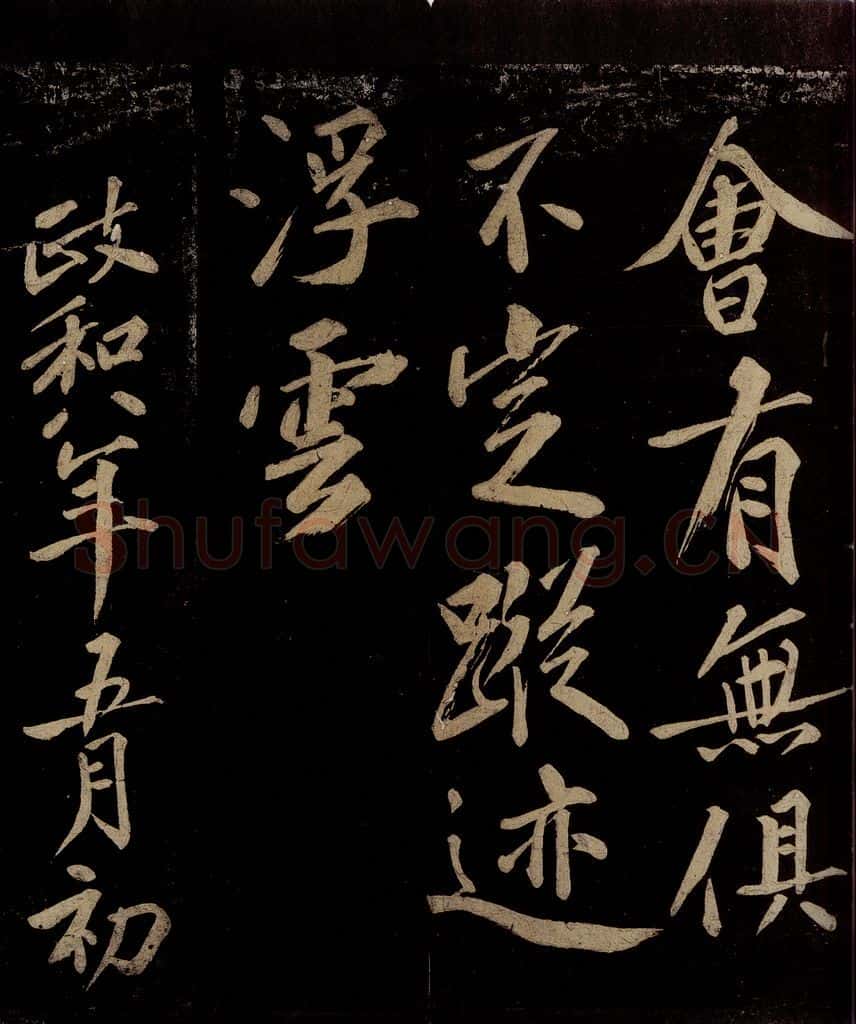 會有無俱
不定蹤迹
浮雲
政和八年五月初
Shufawang.cn